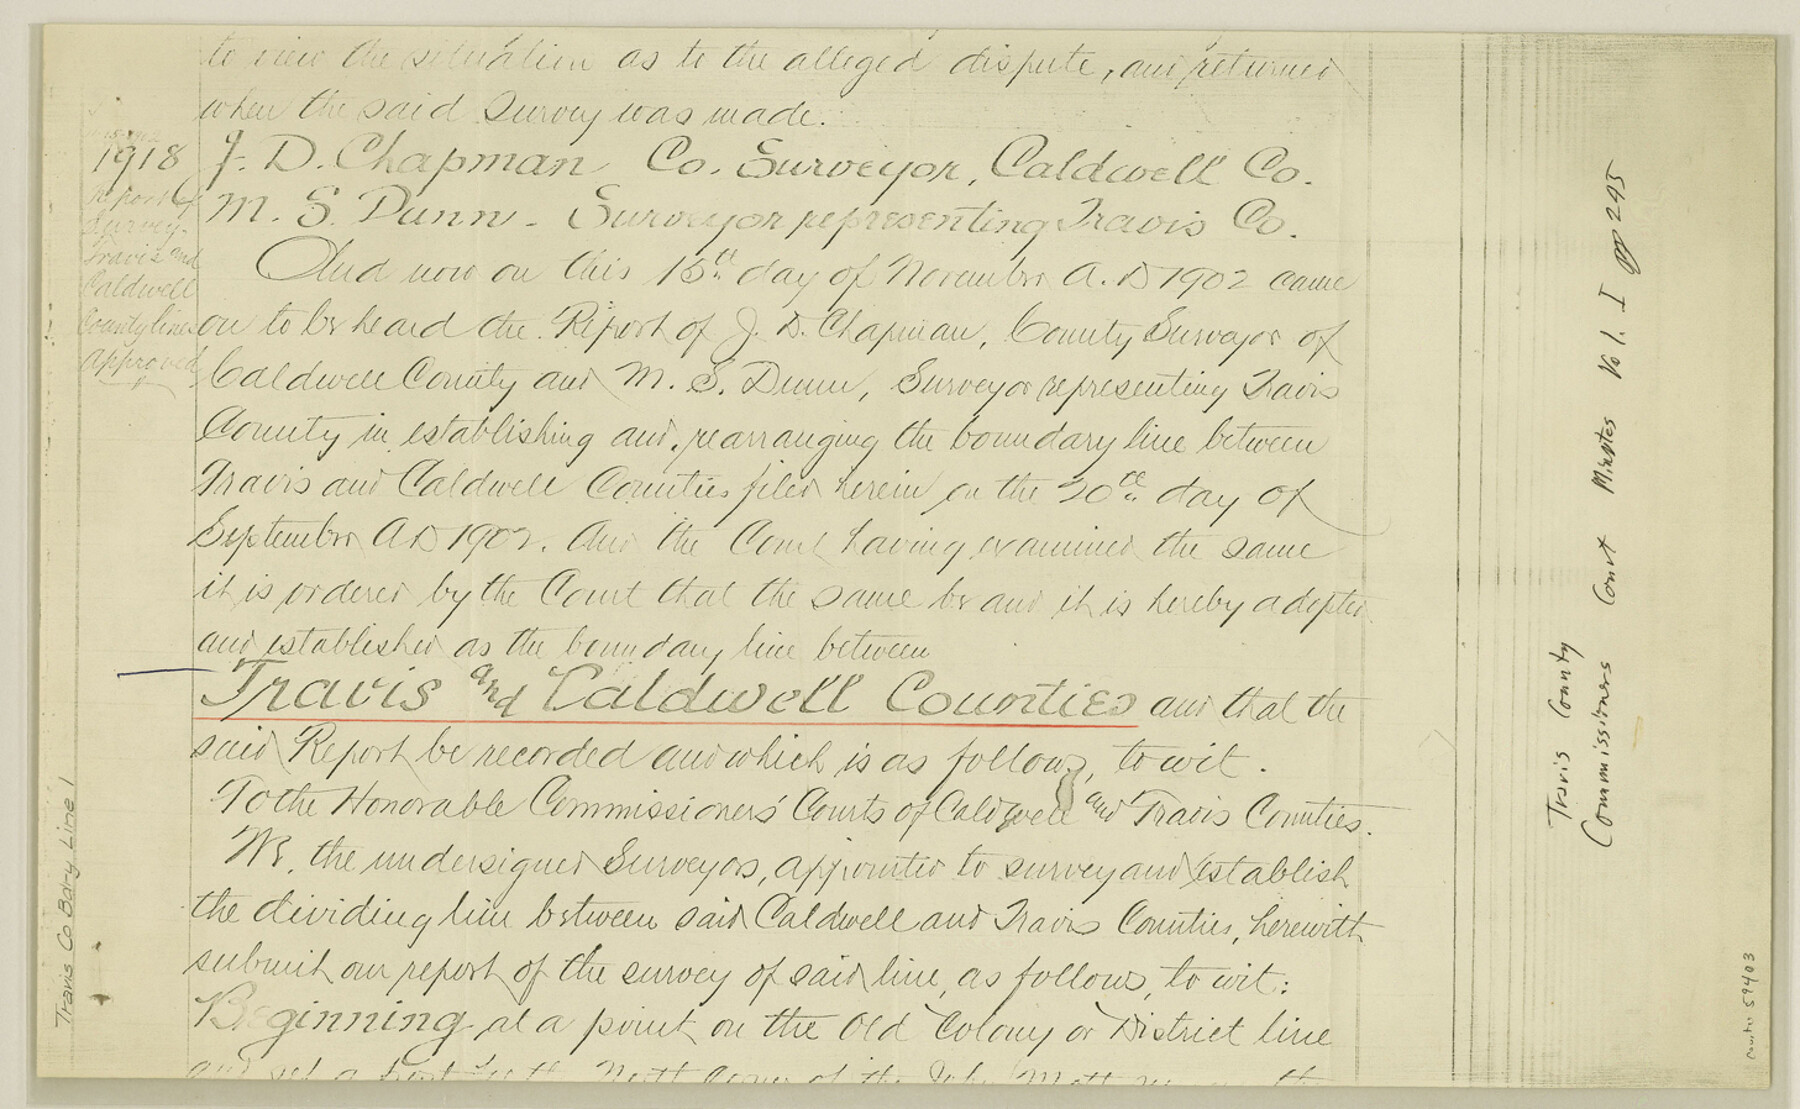 to view the situation as to the alleged dispute, and returned
when the said survey was made.
1918
Report of
Survey-
Travis and
Caldwell
County lines
Approved
J. D. Chapman Co. Surveyor, Caldwell Co.
M. S. Dunn - Surveyor representing Travis Co.
And now on this 15th day of November A. D 1902 came
on to be heard the Report of J. D. Chapman, County Surveyor of
Caldwell County and M. S. Dunn, Surveyor representing Travis
County in establishing and rearranging the boundary line between
Travis and Caldwell Counties filed herein on the 20th day of
September A D 1902. And the Court having examined the same
it is ordered by the Court that the same be and it is hereby adopted
and established as the boundary line between
Travis and Caldwell Counties and that the
said Report be recorded and which is as follows, to wit.
To the Honorable Commissioners' Courts of Caldwell and Travis Counties.
We, the undersigned Surveyors, appointed to survey and establish
the dividing line between said Caldwell and Travis Counties, herewith
submit our report of the survey of said line, as follows, to wit:
Beginning at a point on the Old Colony or District line
North Corner of the
Travis Co Bdry Line 1
Travis County
Commissioners Court Minutes Vol. I pp 245
counter 59403